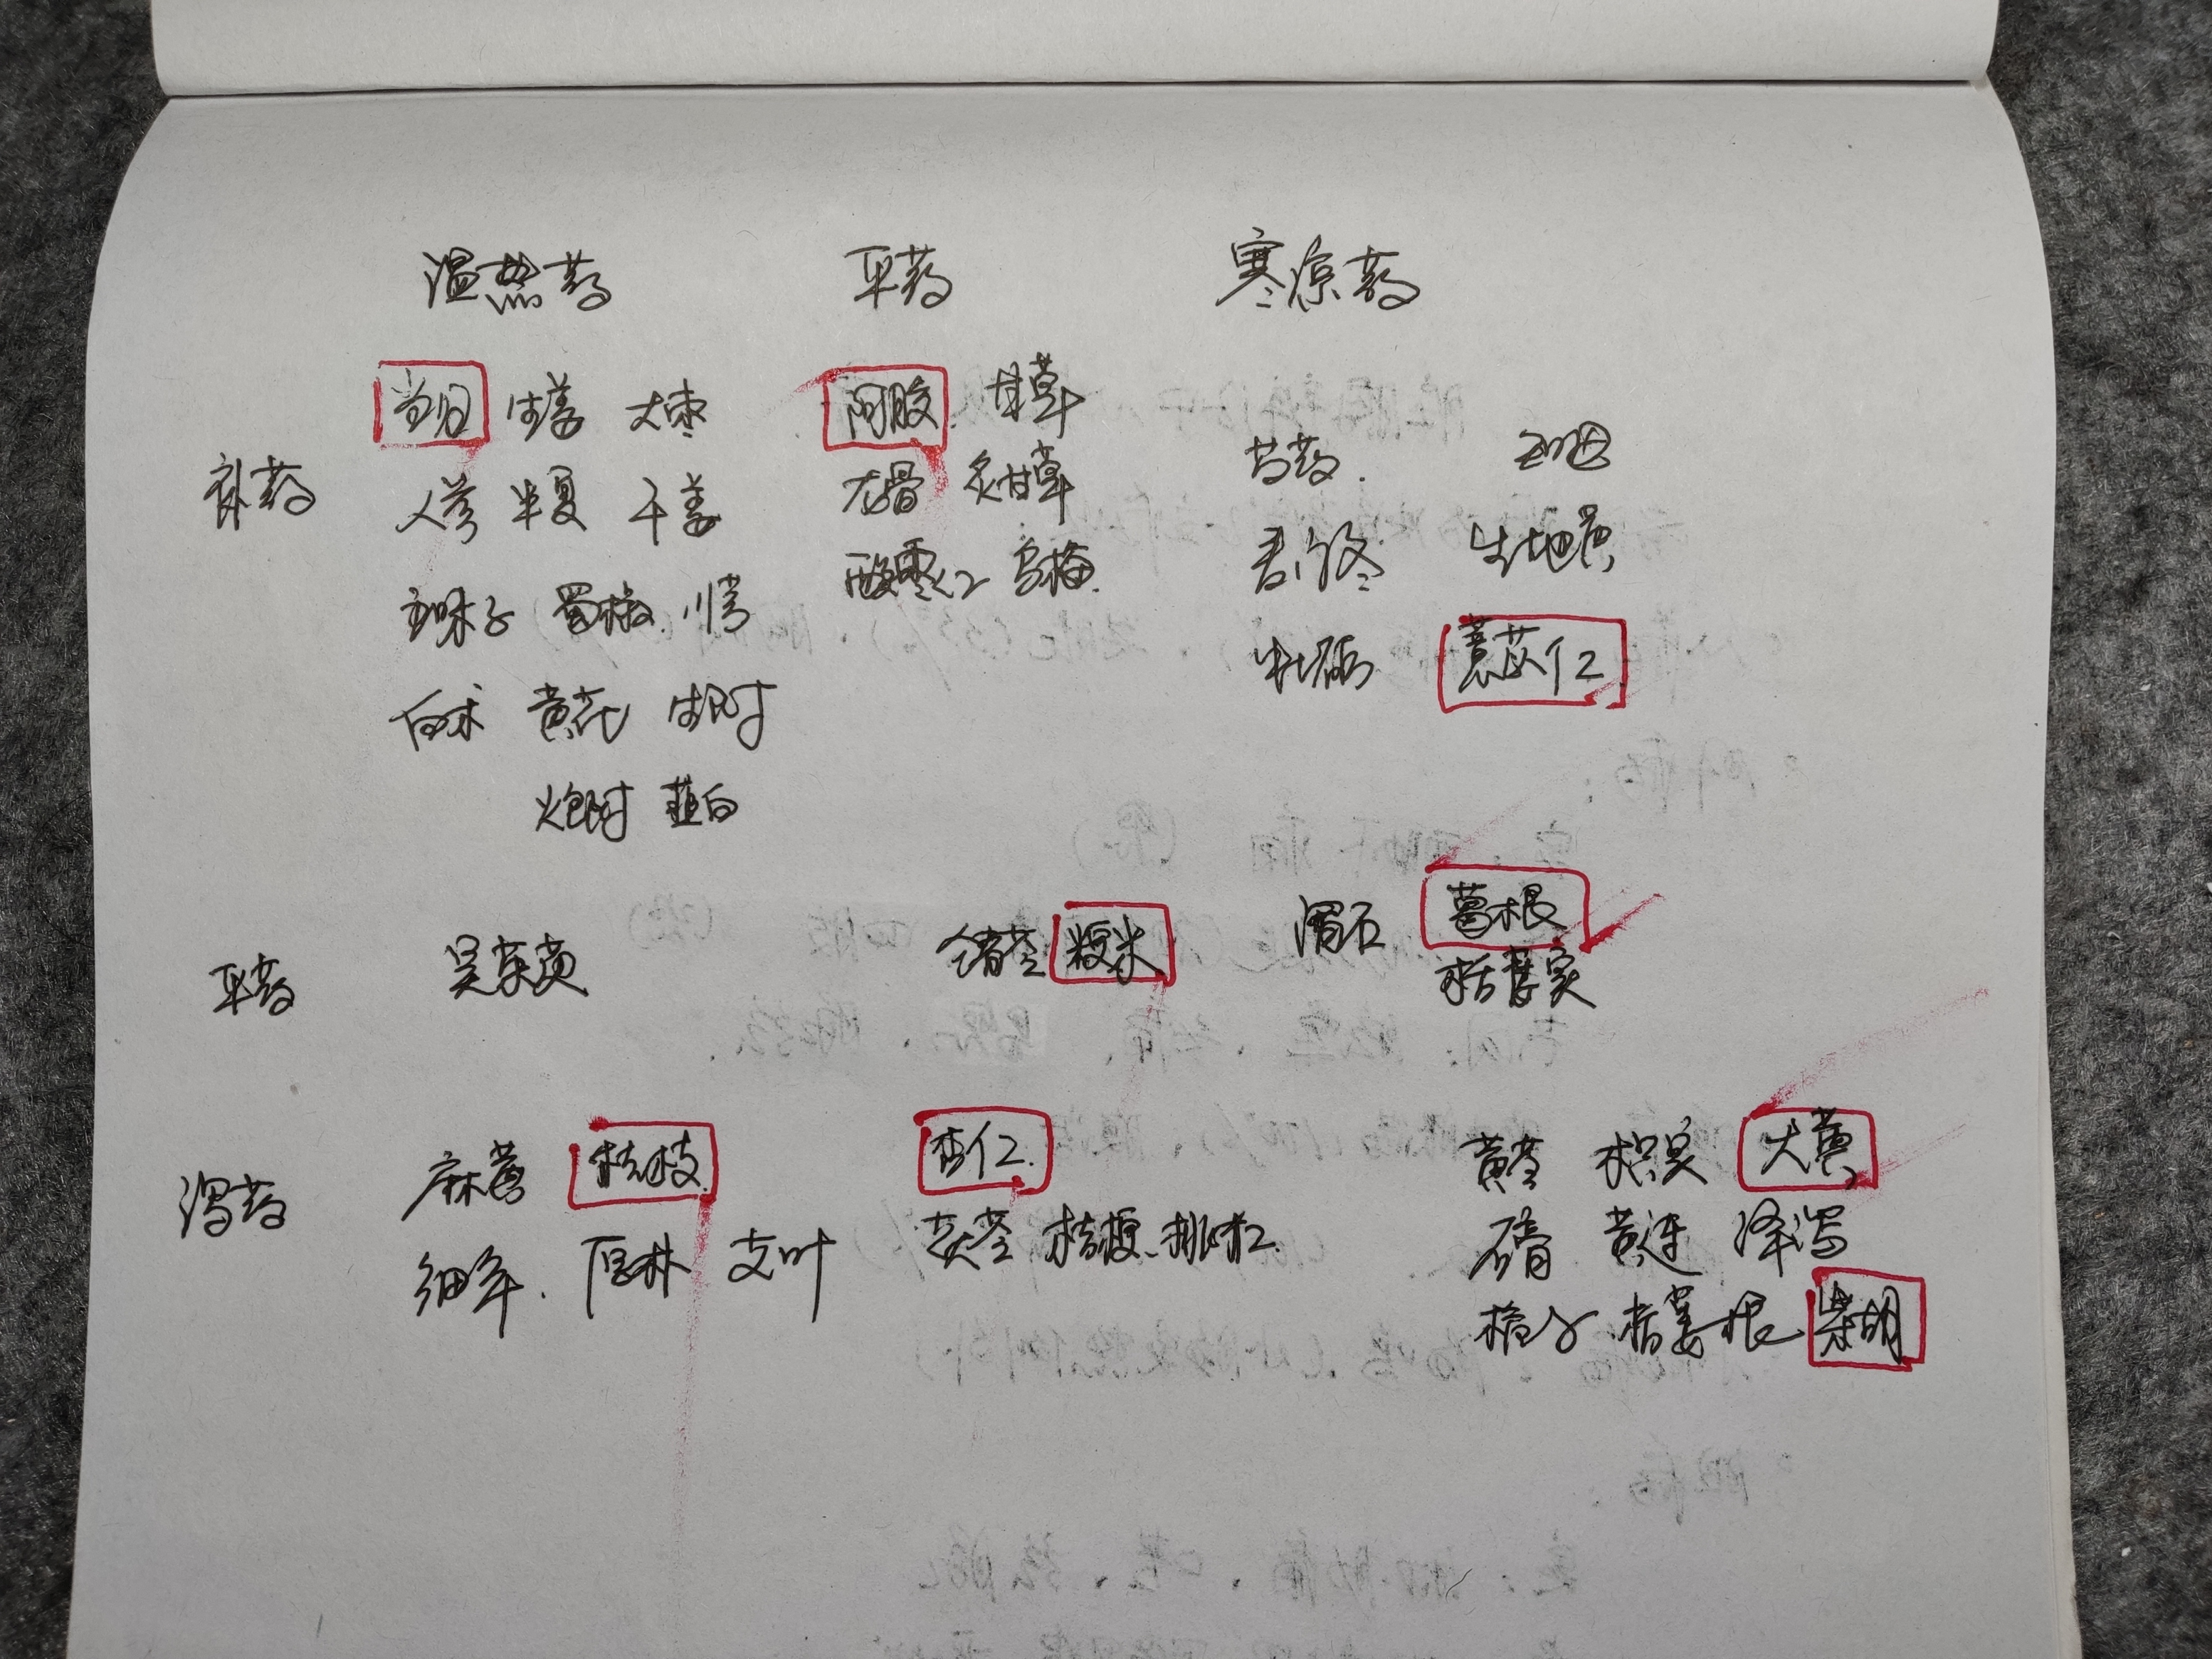 温热药 平药 寒凉药
当归 生姜 大枣 阿胶 甘草
补药 人参 半夏 干姜 龙骨 炙甘草 芍药
五味子 蜀椒 川芎 酸枣仁 乌梅 麦门冬 生地黄
白术 黄芪 生附子 牡蛎 薏苡仁
炮附子 薤白
平药 吴茱萸 猪苓 粳米 滑石 葛根
栝蒌实
泻药 麻黄 桂枝 杏仁 黄芩 枳实 大黄
细辛 厚朴 艾叶 茯苓 桔梗 桃仁 石膏 黄连 泽泻
栀子 栝蒌根 柴胡